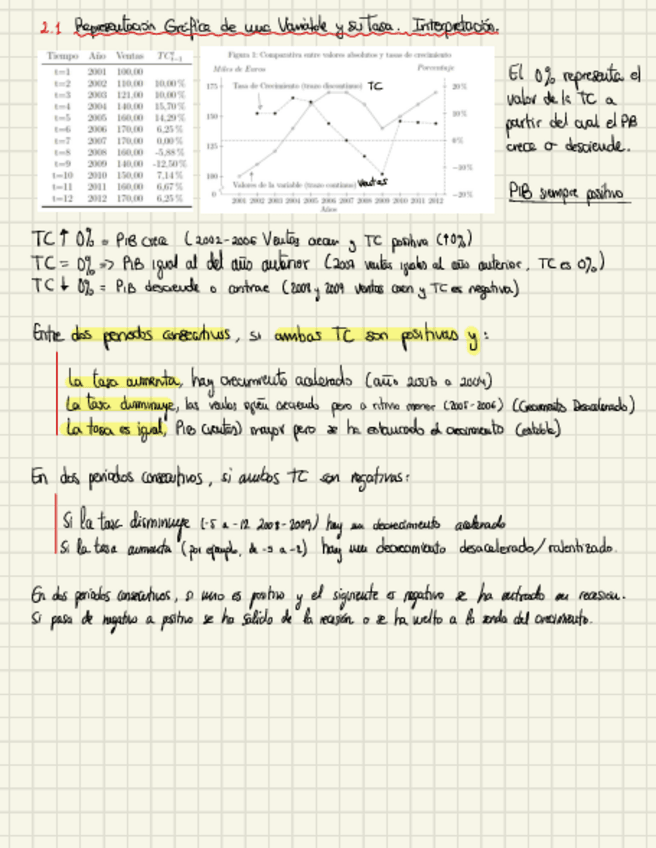 2.1 Representación Gráfica de una Variable y su Tasa. Interpretación.
Tiempo Año Ventas TC
t=1 2001 100,00
t=2 2002 110,00 10,00 %
t=3 2003 121,00 10,00 %
t=4 2004 140,00 15,70 %
t=5 2005 160,00 14,29 %
t=6 2006 170,00 6,25 %
t=7 2007 170,00 0,00 %
t=8 2008 160,00 -5,88 %
t=9 2009 140,00 -12,50 %
t=10 2010 150,00 7,14 %
t=11 2011 160,00 6,67 %
t=12 2012 170,00 6,25 %
Figura 1: Comparativa entre valores absolutos y tasas de crecimiento
Miles de Euros Porcentaje
Tasa de Crecimiento (trazo discontinuo) TC
175 20%
150 10%
0%
125
-10%
100
Valores de la variable (trazo continuo) Ventas
0 -20%
2001 2002 2003 2004 2005 2006 2007 2008 2009 2010 2011 2012
Años
El 0% representa el
valor de la TC a
partir del cual el PIB
crece o desciende.
PIB siempre positivo
TC ↑ 0% = PIB crece (2002-2006 Ventas crecen y TC positiva (↑0%)
TC = 0% => PIB igual al del año anterior (2007 ventas iguales al año anterior, TC es 0%)
TC ↓ 0% = PIB desciende o contrae (2008 y 2009 ventas caen y TC es negativa)
Entre dos periodos consecutivos, si ambas TC son positivas y:
La tasa aumenta, hay crecimiento acelerado (año 2003 a 2004)
La tasa disminuye, las ventas siguen creciendo pero a ritmo menor (2005-2006) (Crecimiento Desacelerado)
La tasa es igual, PIB (ventas) mayor pero se ha estancado el crecimiento (estable)
En dos periodos consecutivos, si ambos TC son negativas:
Si la tasa disminuye (-5 a -12 2008-2009) hay un decrecimiento acelerado
Si la tasa aumenta (por ejemplo, de -5 a -2) hay un decrecimiento desacelerado/ralentizado.
En dos periodos consecutivos, si uno es positivo y el siguiente es negativo se ha entrado en recesión.
Si pasa de negativo a positivo se ha salido de la recesión o se ha vuelto a la senda del crecimiento.